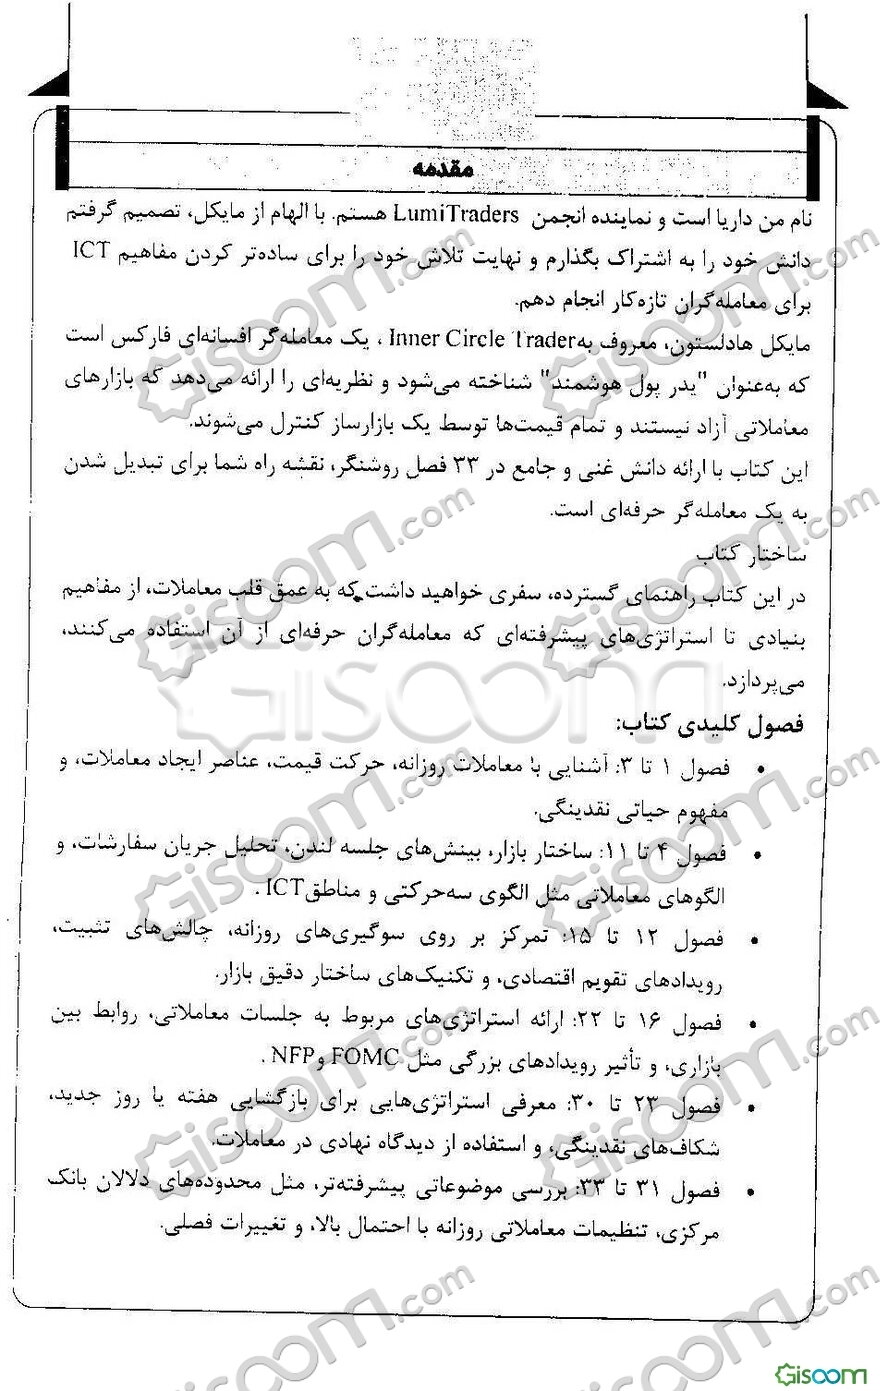 مقدمه
نام من داریا است و نماینده انجمن LumiTraders هستم. با الهام از مایکل، تصمیم گرفتم
دانش خود را به اشتراک بگذارم و نهایت تلاش خود را برای ساده‌تر کردن مفاهیم ICT
برای معامله‌گران تازه‌کار انجام دهم.
مایکل هادلستون، معروف به Inner Circle Trader ، یک معامله‌گر افسانه‌ای فارکس است
که به‌عنوان "پدر پول هوشمند" شناخته می‌شود و نظریه‌ای را ارائه می‌دهد که بازارهای
معاملاتی آزاد نیستند و تمام قیمت‌ها توسط یک بازارساز کنترل می‌شوند.
این کتاب با ارائه دانش غنی و جامع در ۳۳ فصل روشنگر، نقشه راه شما برای تبدیل شدن
به یک معامله‌گر حرفه‌ای است.
ساختار کتاب
در این کتاب راهنمای گسترده، سفری خواهید داشت که به عمق قلب معاملات، از مفاهیم
بنیادی تا استراتژی‌های پیشرفته‌ای که معامله‌گران حرفه‌ای از آن استفاده می‌کنند،
می‌پردازد.
فصول کلیدی کتاب:
• فصول ۱ تا ۳: آشنایی با معاملات روزانه، حرکت قیمت، عناصر ایجاد معاملات، و
مفهوم حیاتی نقدینگی.
• فصول ۴ تا ۱۱: ساختار بازار، بینش‌های جلسه لندن، تحلیل جریان سفارشات، و
الگوهای معاملاتی مثل الگوی سه‌حرکتی و مناطق ICT .
• فصول ۱۲ تا ۱۵: تمرکز بر روی سوگیری‌های روزانه، چالش‌های تثبیت،
رویدادهای تقویم اقتصادی، و تکنیک‌های ساختار دقیق بازار.
• فصول ۱۶ تا ۲۲: ارائه استراتژی‌های مربوط به جلسات معاملاتی، روابط بین
بازاری، و تأثیر رویدادهای بزرگی مثل FOMC و NFP .
• فصول ۲۳ تا ۳۰: معرفی استراتژی‌هایی برای بازگشایی هفته یا روز جدید،
شکاف‌های نقدینگی، و استفاده از دیدگاه نهادی در معاملات.
• فصول ۳۱ تا ۳۳: بررسی موضوعاتی پیشرفته‌تر، مثل محدوده‌های دلالان بانک
مرکزی، تنظیمات معاملاتی روزانه با احتمال بالا، و تغییرات فصلی.
Gisoom.com
Gisoom